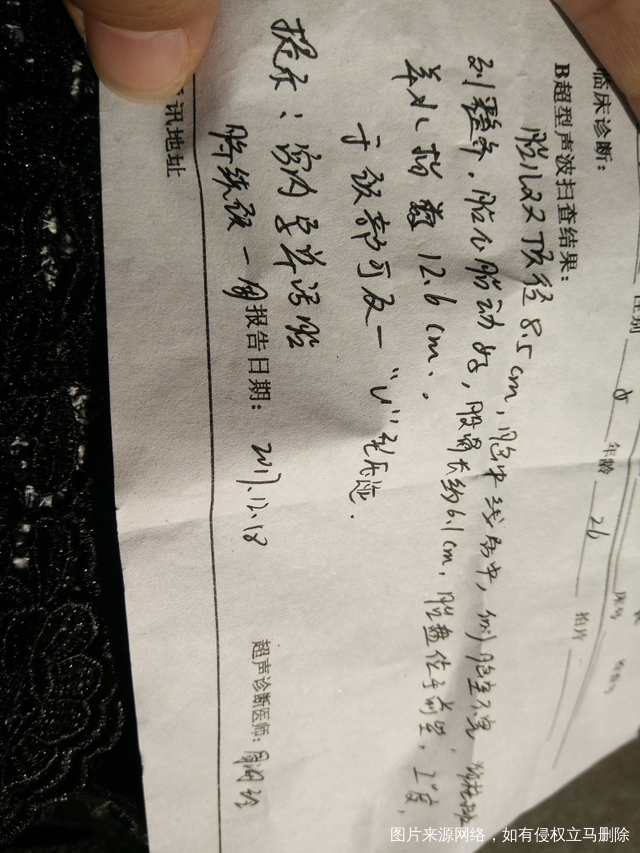 性别 女 年龄 26 拍片
临床诊断:
B超型声波扫查结果:
胎儿双顶径8.5cm,脑中线居中,侧脑室不宽
列整齐,胎心胎动好,股骨长约6.1cm,胎盘位子前壁,I°度,
羊水指数12.6cm。
于颈部可及一“V”型压迹.
提示:宫内孕单活胎
脐绕颈一周
报告日期: 2017.12.18
超声诊断医师:
讯地址
图片来源网络,如有侵权立马删除